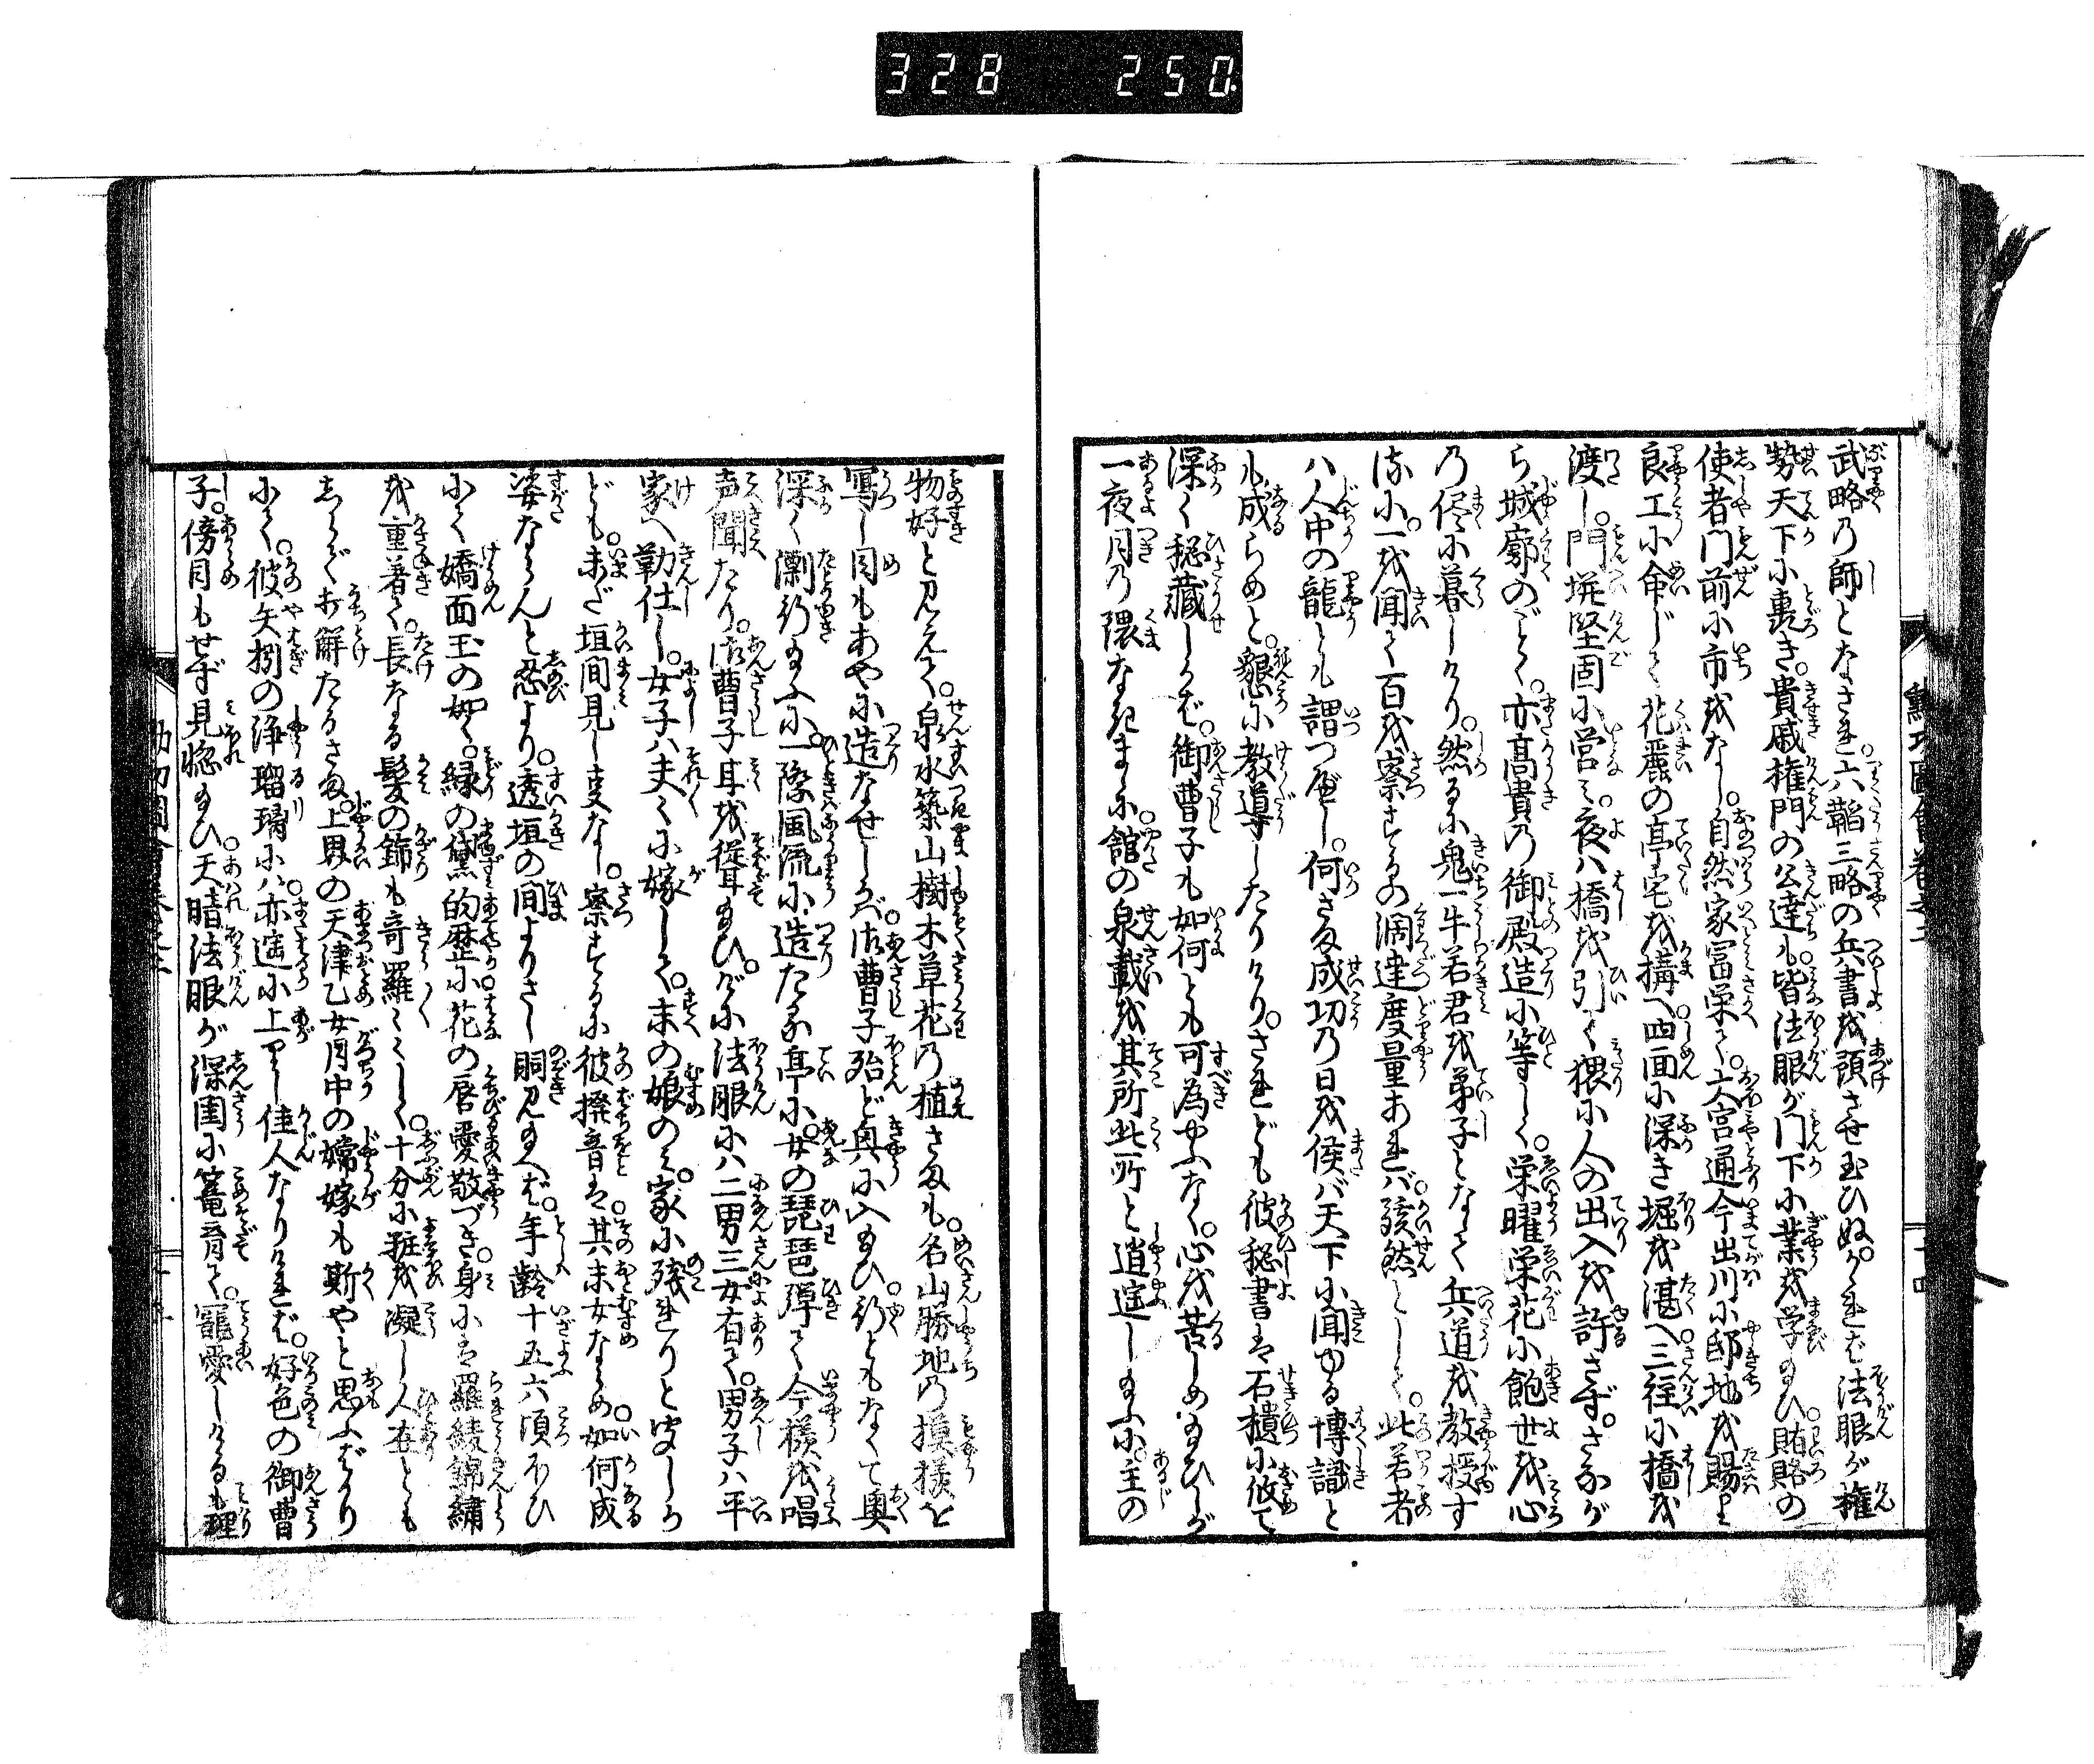 328 250
武略乃師となされ。六韜三略の兵書を預させ玉ひぬ。かれば法眼が権
勢天下に轟き。貴戚権門の公達も。皆法眼が門下に業を学玉ひ。賄賂の
使者門前に市をなし。自然家冨栄て。大宮通今出川に邸地を賜り
良工に命じて花麗の亭宅を構へ。四面に深き堀を湛へ。三径に橋を
渡し。門塀堅固に営み。夜ハ橋を引て猥に人の出入を許さず。さなが
ら城廓のごとく。亦高貴の御殿造に等しく。栄曜栄花に飽世を心
乃侭に暮しけり。然るに鬼一牛若君を弟子となして兵道を教授す
るに。一を聞て百を察するの濶達度量あれバ。駭然として。此若者
ハ人中の龍とも謂つべし。何さま成功乃日を俟バ天下に聞ゆる博識と
も成らめと。懇に教導したりけり。されども彼秘書は石櫃に收て
深く秘蔵しかば。御曹子も如何とも可為やふなく。心を苦しめ玉ひしが
一夜月乃隈なきまゝに館の泉載を其所此所と逍遥し玉ふに。主の
物好と見えて。泉水築山樹木草花乃植さまも。名山勝地乃摸様を
写し目もあやに造なせしかバ。御曹子殆ど興に入玉ひ。行ともなくて奥
深く徘行玉ふに。一際風流に造たる亭に。女の琵琶弾て今様を唱
声聞たり。御曹子耳を聳玉ひしが。法眼にハ二男三女有て。男子ハ平
家へ勤仕し。女子ハ夫〻に嫁して。末の娘のミ。家に残れりと聞しか
ども。未だ垣間見し支なし。察するに彼撥音は。其末女ならめ如何成
姿ならんと忍より。透垣の間よりさし覗見玉へば。年齢十五六頃ほひ
にて嬌面玉の如く。緑の黛的歴に花の唇愛敬づき。身には羅綾錦繍
を重着て。長なる髪の餝も奇羅〻〻しく。十分に粧を凝し人在とも
しらず打解たるさま。上界の天津乙女月中の嫦嫁も斯やと思ふばかり
にて。彼矢矧の浄瑠璃にハ。亦遥に上なし佳人なりければ。好色の御曹
子。傍目もせず見惚玉ひ。天暗法眼が深閨に篭育て。寵愛しけるも理